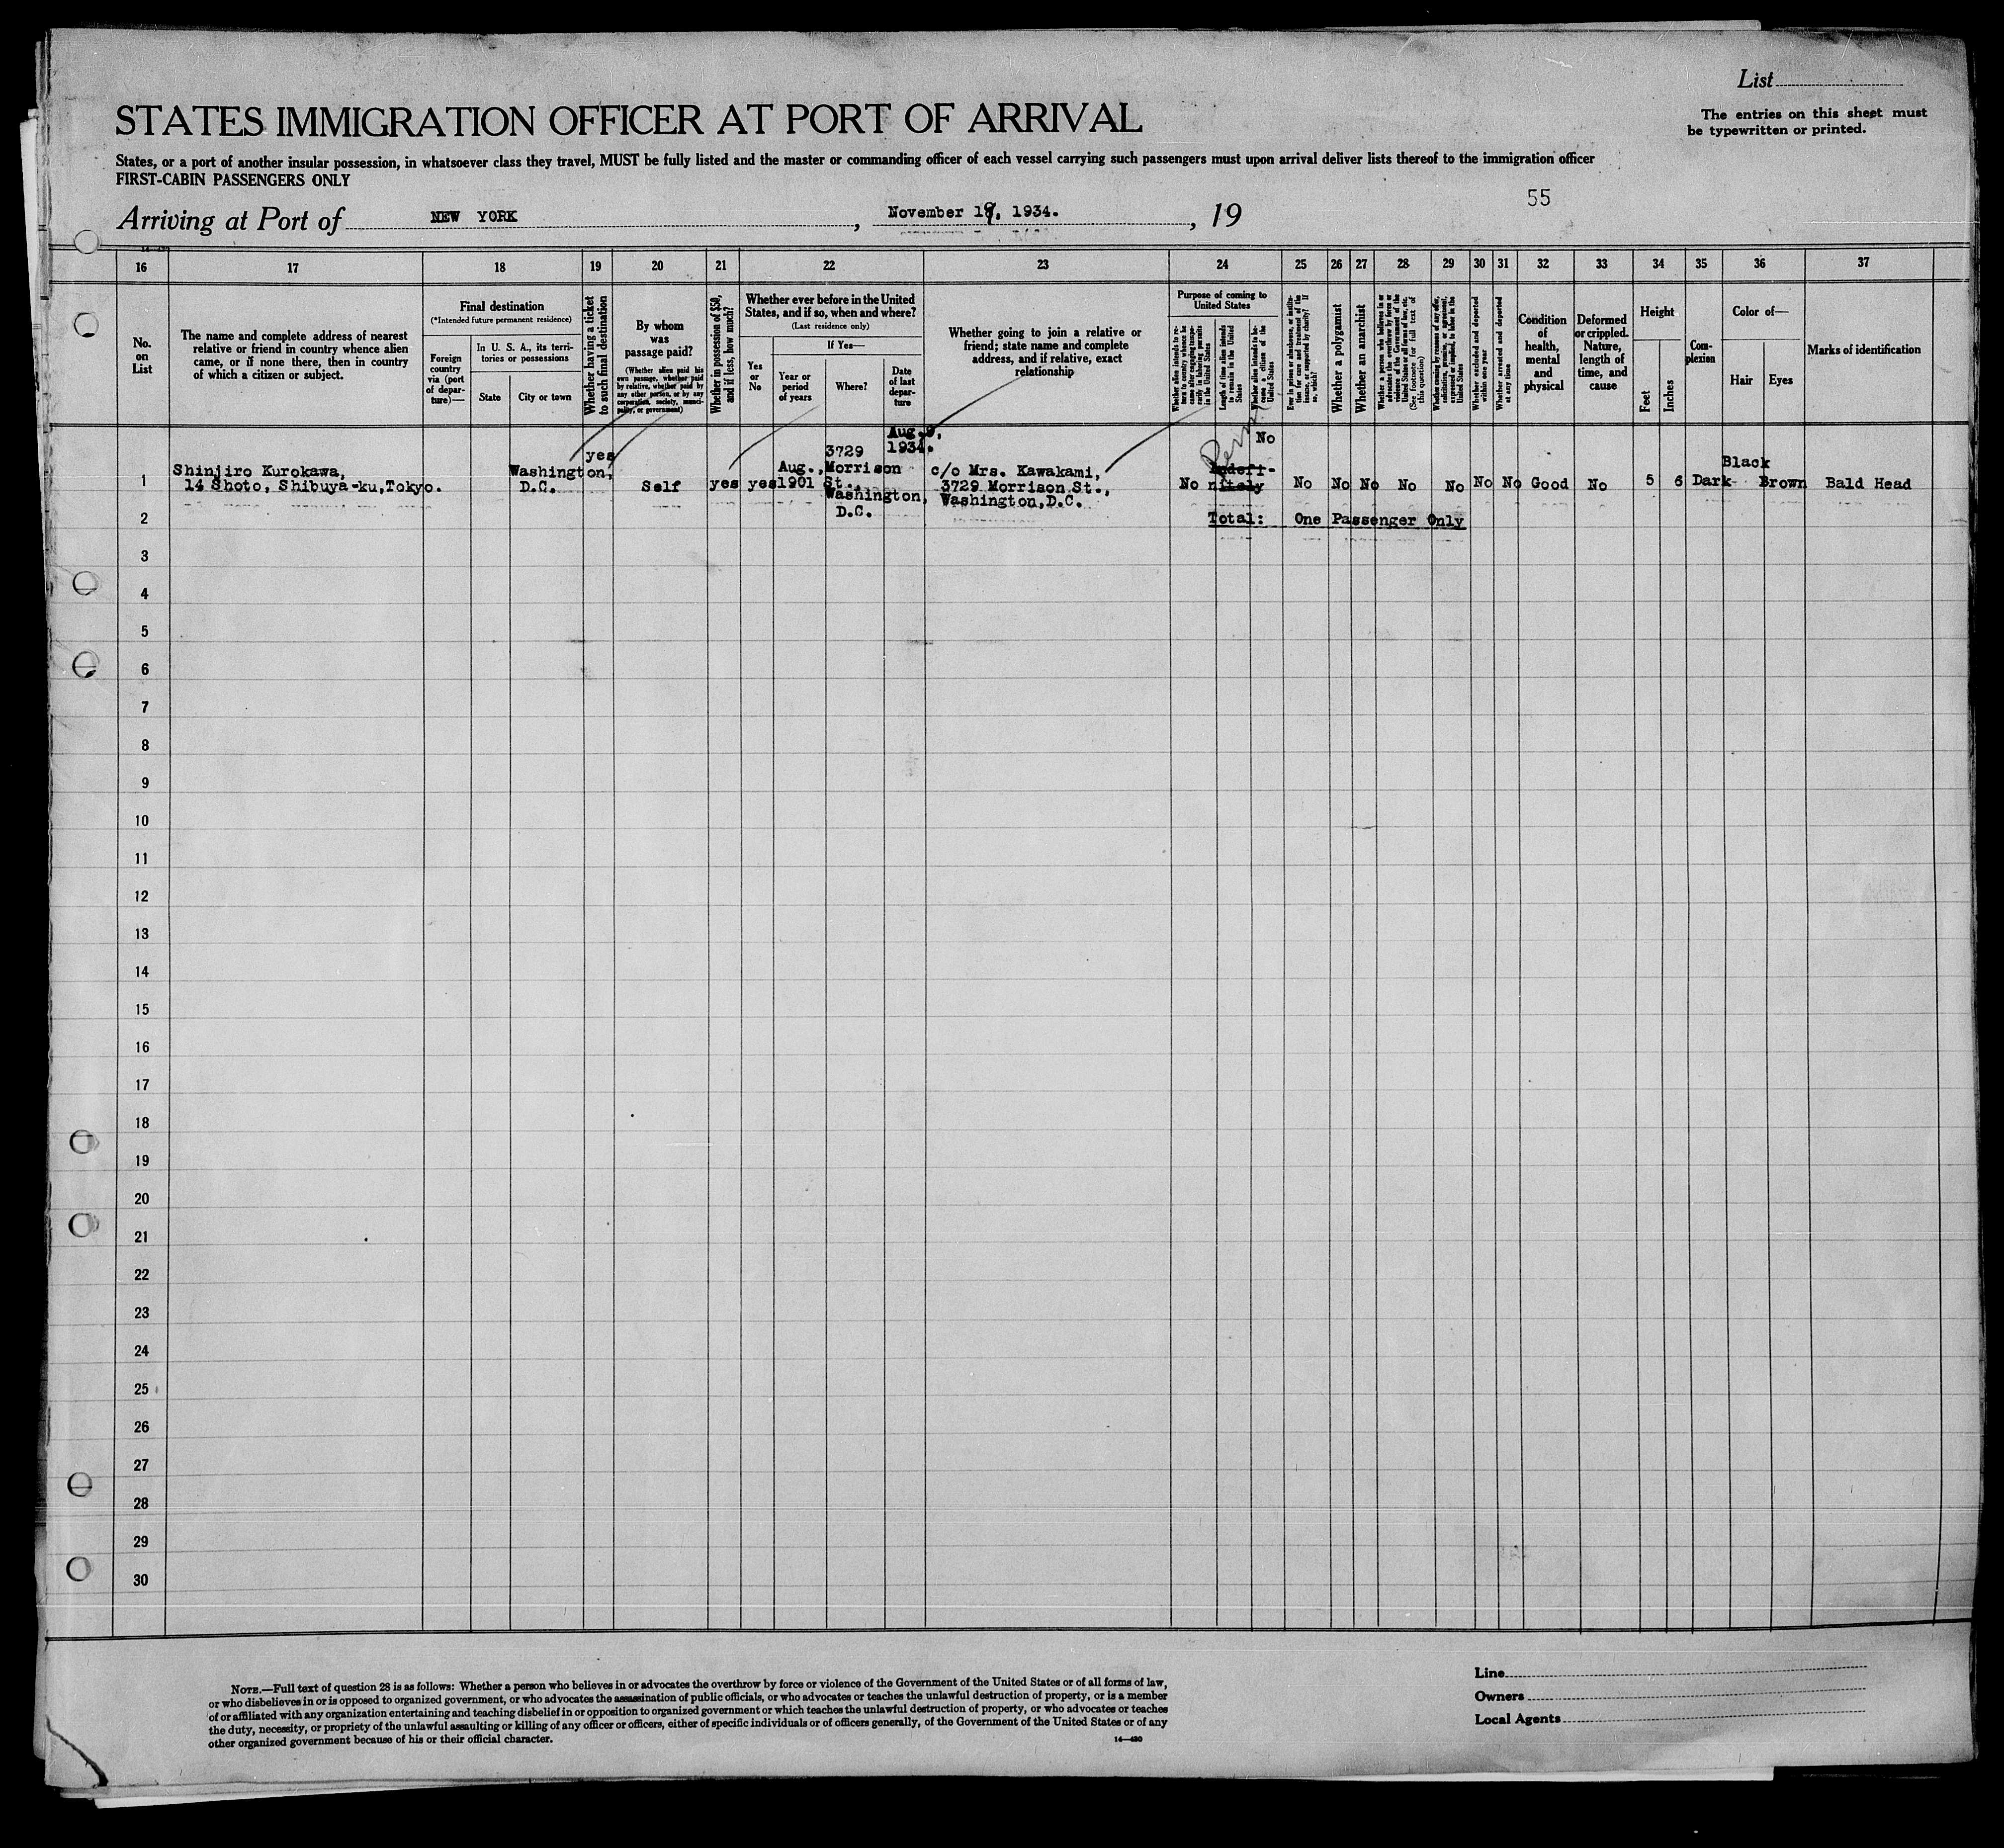 List
STATES IMMIGRATION OFFICER AT PORT OF ARRIVAL
The entries on this sheet must
be typewritten or printed.
States, or a port of another insular possession, in whatsoever class they travel, MUST be fully listed and the master or commanding officer of each vessel carrying such passengers must upon arrival deliver lists thereof to the immigration officer
FIRST-CABIN PASSENGERS ONLY
55
Arriving at Port of NEW YORK, November 19, 1934., 19
16 17 18 19 20 21 22 23 24 25 26 27 28 29 30 31 32 33 34 35 36 37
No.
on
List
The name and complete address of nearest
relative or friend in country whence alien
came, or if none there, then in country
of which a citizen or subject.
Final destination
(*Intended future permanent residence)
Foreign
country
via (port
of depar-
ture)—
In U. S. A., its terri-
tories or possessions
State
City or town
Whether having a ticket
to such final destination
By whom
was
passage paid?
(Whether alien paid his
own passage, whether paid
by relative, whether paid by
any other person, or by any
corporation, society, munici-
pality, or government)
Whether in possession of $50,
and if less, how much?
Whether ever before in the United
States, and if so, when and where?
(Last residence only)
Yes
or
No
If Yes—
Year or
period
of years
Where?
Date
of last
depar-
ture
Whether going to join a relative or
friend; state name and complete
address, and if relative, exact
relationship
Purpose of coming to
United States
Whether alien intends to re-
turn to country whence he
came after engaging tempo-
rarily in laboring pursuits
in the United States
Length of time alien intends
to remain in the United
States
Whether alien intends to be-
come a citizen of the
United States
Ever in prison or almshouse, or institu-
tion for care and treatment of the
insane, or supported by charity? If
so, which?
Whether a polygamist
Whether an anarchist
Whether a person who believes in or
advocates the overthrow by force or
violence of the Government of the
United States or all forms of law, etc.
(See footnote for full text of
this question)
Whether coming by reason of any offer,
solicitation, promise, or agreement,
expressed or implied, to labor in the
United States
Whether excluded and deported
within one year
Whether arrested and deported
at any time
Condition
of
health,
mental
and
physical
Deformed
or crippled.
Nature,
length of
time, and
cause
Height
Feet
Inches
Com-
plexion
Color of—
Hair
Eyes
Marks of identification
1
Shinjiro Kurokawa,
14 Shoto, Shibuya-ku, Tokyo.
Washington,
D.C.
yes
Self
yes
yes
Aug.,
1901
3729
Morrison
St.,
Washington,
D.C.
Aug. 9,
1934.
c/o Mrs. Kawakami,
3729 Morrison St.,
Washington, D.C.
No
Indefi-
nitely
Perm
No
No
No
No
No
No
No
No
Good
No
5
6
Dark
Black
Brown
Bald Head
2
Total: One Passenger Only
3
4
5
6
7
8
9
10
11
12
13
14
15
16
17
18
19
20
21
22
23
24
25
26
27
28
29
30
NOTE.—Full text of question 28 is as follows: Whether a person who believes in or advocates the overthrow by force or violence of the Government of the United States or of all forms of law,
or who disbelieves in or is opposed to organized government, or who advocates the assassination of public officials, or who advocates or teaches the unlawful destruction of property, or is a member
of or affiliated with any organization entertaining and teaching disbelief in or opposition to organized government or which teaches the unlawful destruction of property, or who advocates or teaches
the duty, necessity, or propriety of the unlawful assaulting or killing of any officer or officers, either of specific individuals or of officers generally, of the Government of the United States or of any
other organized government because of his or their official character.
14—430
Line
Owners
Local Agents